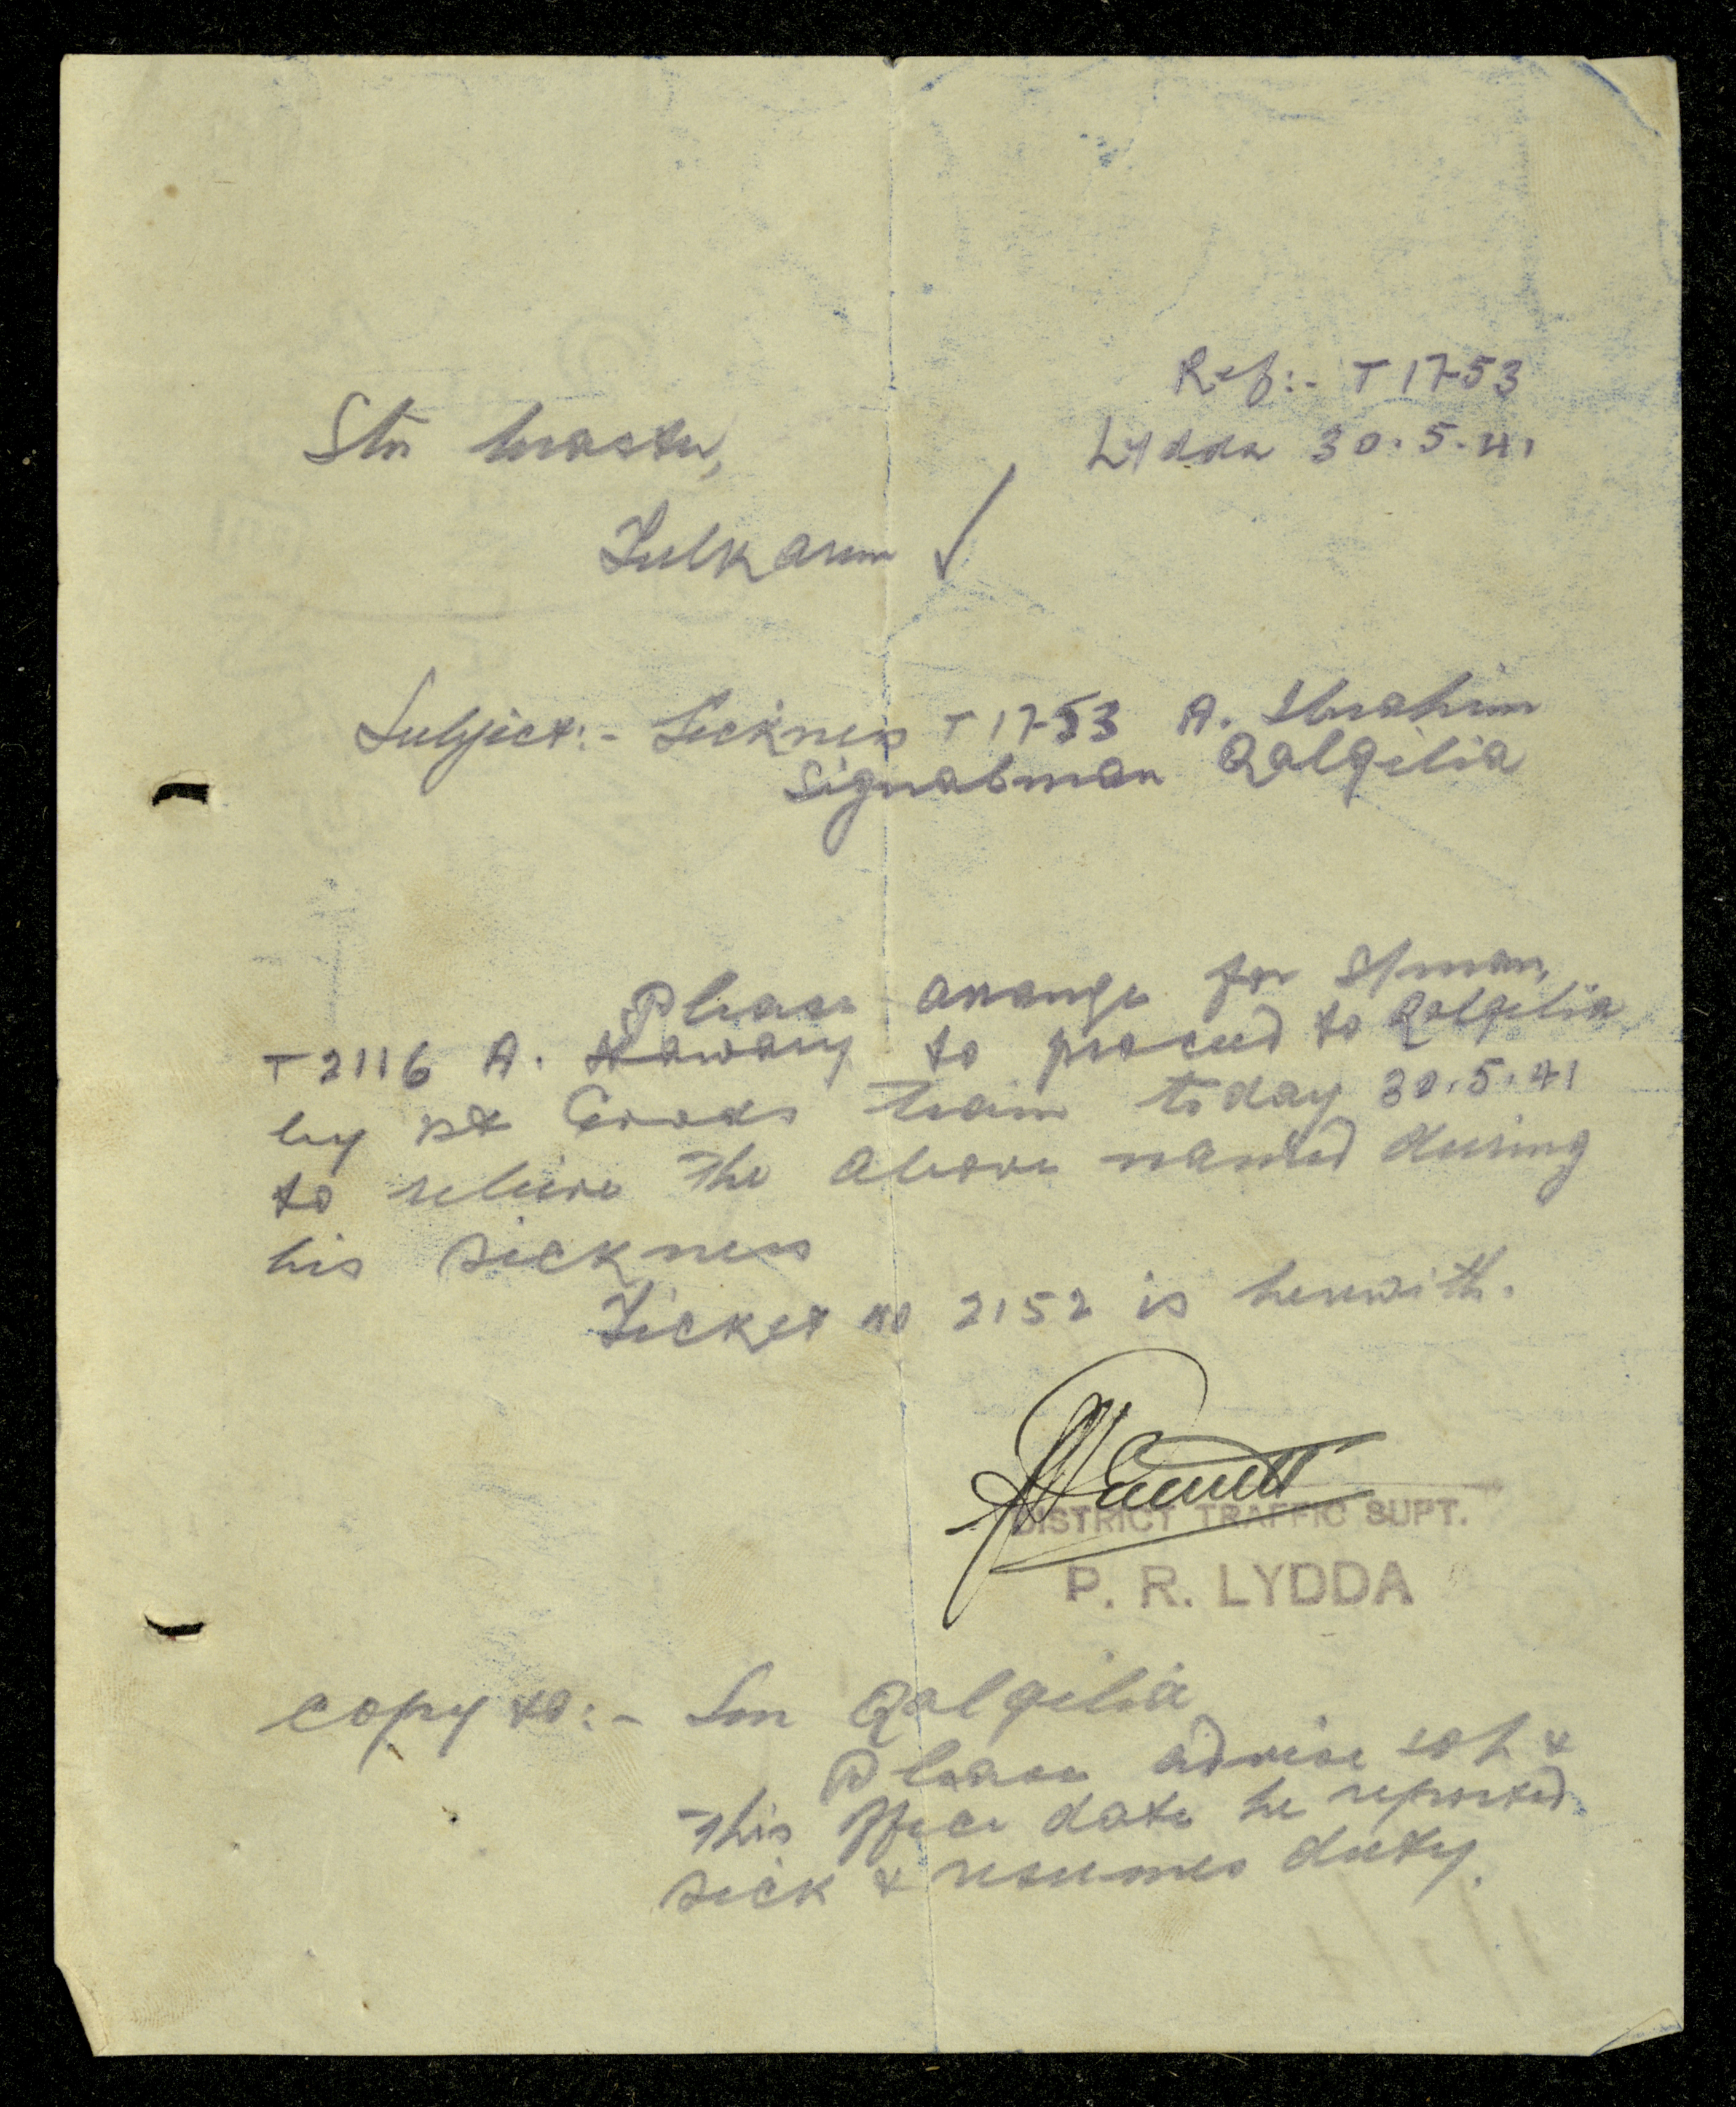 Ref:- T 1753
Lydda 30.5.41
Stn Master,
Tulkarm
Subject:- Sickness T 1753 A. Ibrahim
Signalman Qalqilia
Please arrange for S/man,
T 2116 A. Hawary to proceed to Qalqilia
by 1st Goods train today 30.5.41
to relieve the above named during
his sickness
Ticket no 2152 is herewith.
DISTRICT TRAFFIC SUPT.
P. R. LYDDA
copy to:- Sm Qalqilia
Please advise &
this office date he reported
sick & resumes duty.